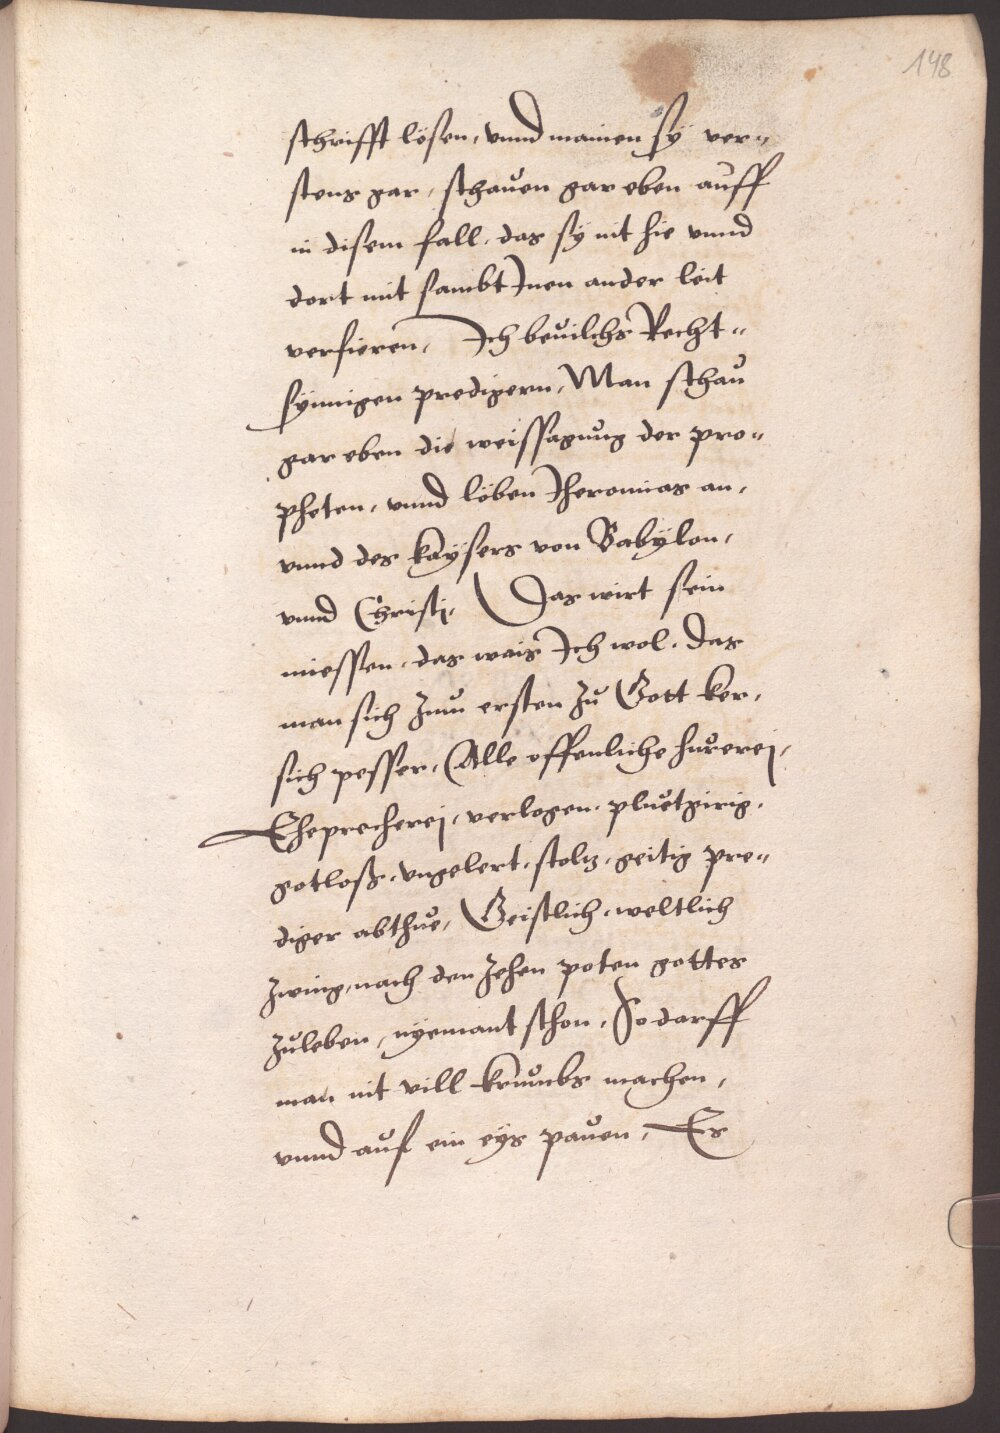 148
schrifft lösen, vnnd mainen sÿ ver-
stens gar, schauen gar eben auff
in disem fall, das sÿ nit hie vnnd
dort mit sambt Inen ander leüt
verfieren, Ich beuilchs Recht-
sÿnnigen predigern, Man schau
gar eben die weissagung der pro-
pheten, vnnd leben Iheremias an,
vnnd des kaÿsers von Babÿlon,
vnnd Christi, Das wirt sein
miessen, das wais Ich wol, das
man sich zum ersten zu Gott ker,
sich pesser, Alle offenliche hurerej,
Eheprecherej, verlogen, pluetgirig,
gotloß, vngelert, stoltz, geitig pre-
diger abthue, Geistlich, weltlich
zwing, nach den zehen poten gottes
zuleben, nÿemant schon, So darff
man nit vill krumbs machen,
vnnd auf ein eÿs pauen, Es